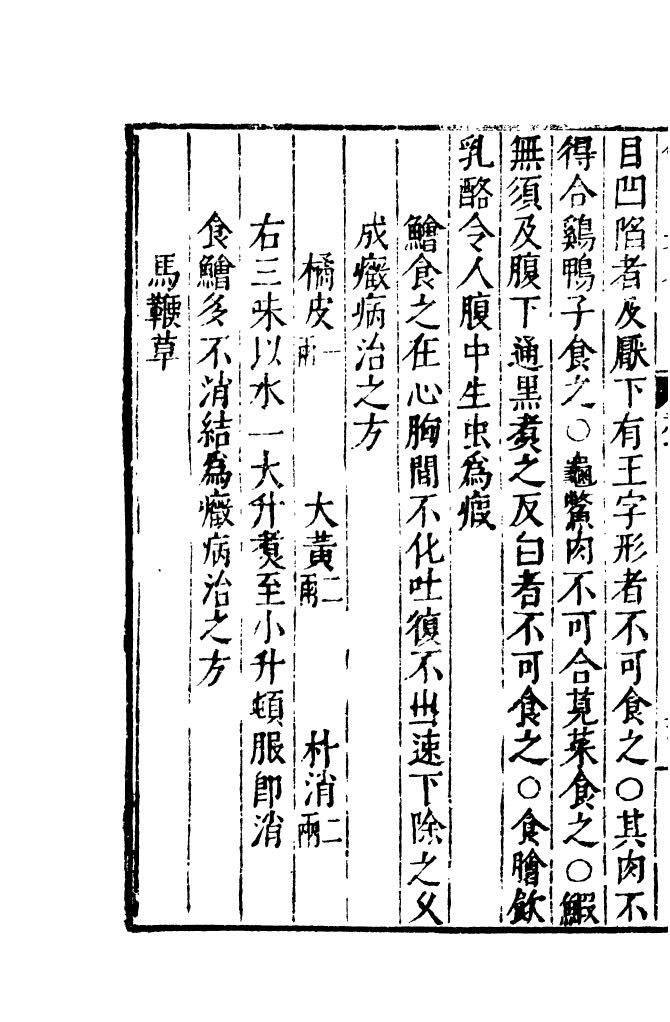 目凹陷者及厭下有王字形者不可食之○其肉不
得合鷄鴨子食之○龜鱉肉不可合莧菜食之○鰕
無須及腹下通黑煑之反白者不可食之○食膾飲
乳酪令人腹中生虫爲瘕
鱠食之在心胸間不化吐復不出速下除之久
成癥病治之方
橘皮一兩 大黃二兩 朴消二兩
右三味以水一大升煑至小升頓服即消
食鱠多不消結爲癥病治之方
馬鞭草